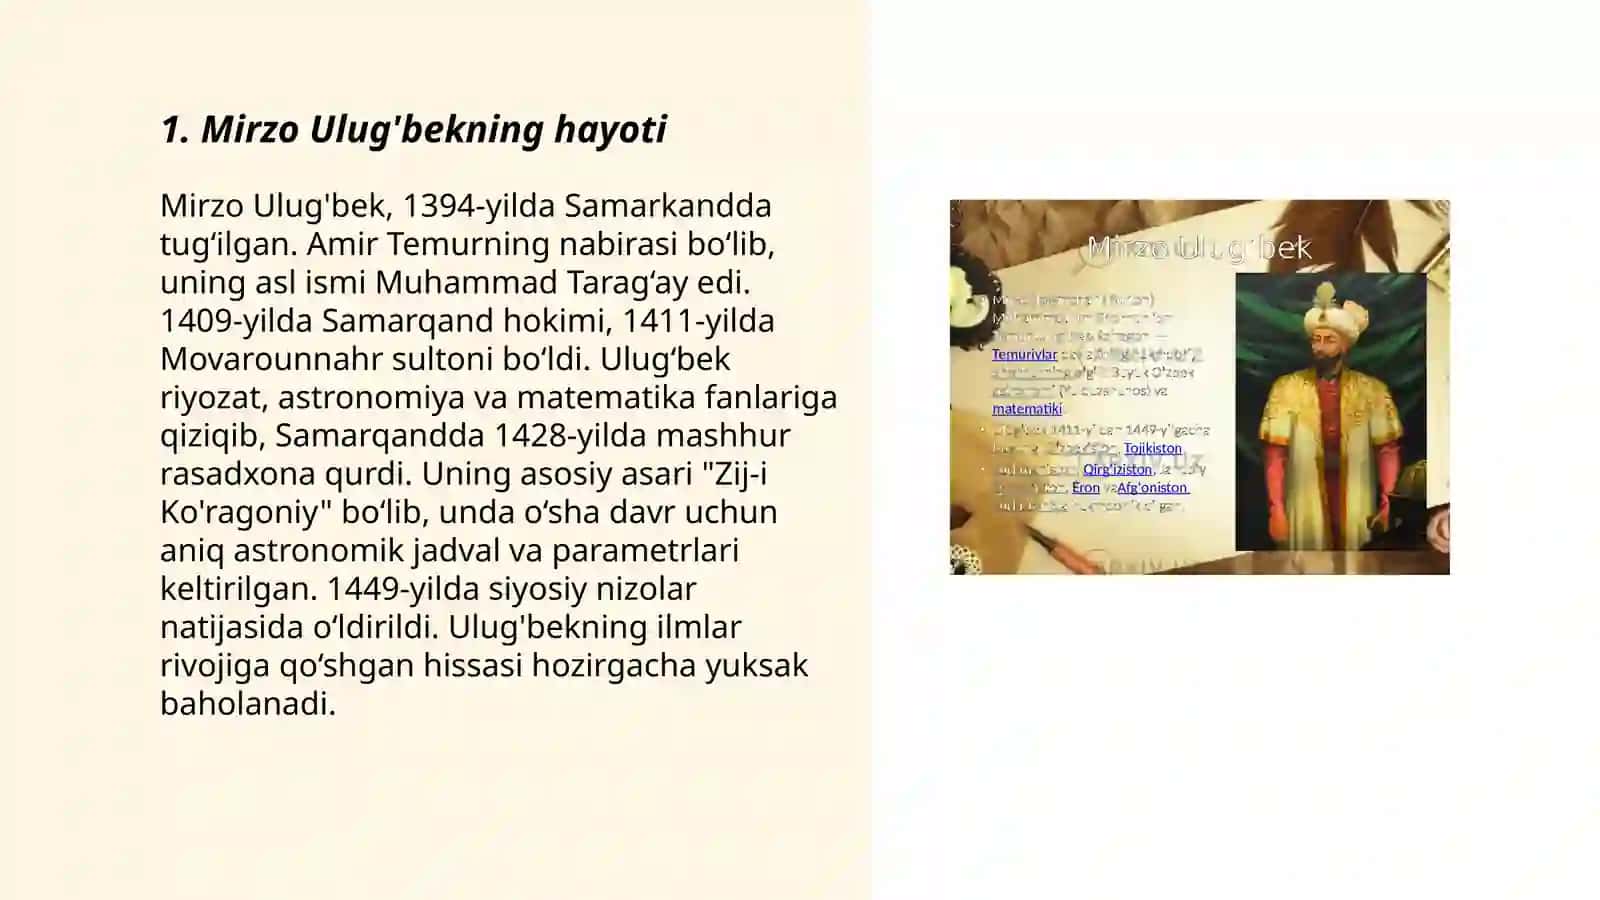 1. Mirzo Ulug'bekning hayoti
Mirzo Ulug'bek, 1394-yilda Samarkandda
tug‘ilgan. Amir Temurning nabirasi bo‘lib,
uning asl ismi Muhammad Tarag‘ay edi.
1409-yilda Samarqand hokimi, 1411-yilda
Movarounnahr sultoni bo‘ldi. Ulug‘bek
riyozat, astronomiya va matematika fanlariga
qiziqib, Samarqandda 1428-yilda mashhur
rasadxona qurdi. Uning asosiy asari "Zij-i
Ko'ragoniy" bo‘lib, unda o‘sha davr uchun
aniq astronomik jadval va parametrlari
keltirilgan. 1449-yilda siyosiy nizolar
natijasida o‘ldirildi. Ulug'bekning ilmlar
rivojiga qo‘shgan hissasi hozirgacha yuksak
baholanadi.
Mirzo Ulug‘bek
Temuriylar
va
matematiki
1411-yildan 1449-yilgacha
Tojikiston
Qirg‘iziston,
Eron va Afg‘oniston